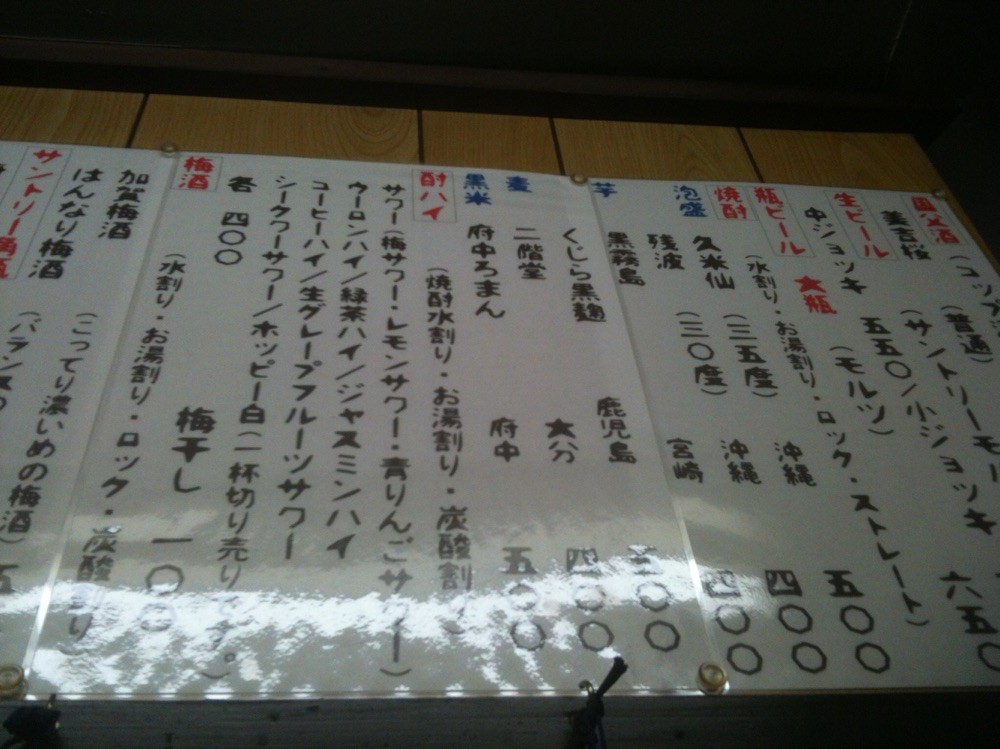 (コップ
(普通)
生ビール (サントリーモル
中ジョッキ 五五〇/小ジョッキ
瓶ビール 大瓶 (モルツ)
焼酎 (水割り・お湯割り・ロック・ストレート)
泡盛 久米仙 (三五度) 沖縄 五〇〇
残波 (三〇度) 沖縄 四〇〇
芋 黒霧島 宮崎 四〇〇
くじら黒麹 鹿児島 〇〇
麦 二階堂 大分 四〇〇
黒米 府中ろまん 府中 五〇〇
酎ハイ (焼酎水割り・お湯割り・炭酸割り)
サワー(梅サワー・レモンサワー・青りんごサワー)
ウーロンハイ/緑茶ハイ/ジャスミンハイ
コーヒーハイ/生グレープフルーツサワー
シークワサワー/ホッピー白(一杯切り売り
各 四〇〇
梅干し 一〇〇
梅酒 (水割り・お湯割り・ロック・炭酸割り
加賀梅酒
はんなり梅酒 (こってり濃いめの梅酒) 五
サントリー角瓶